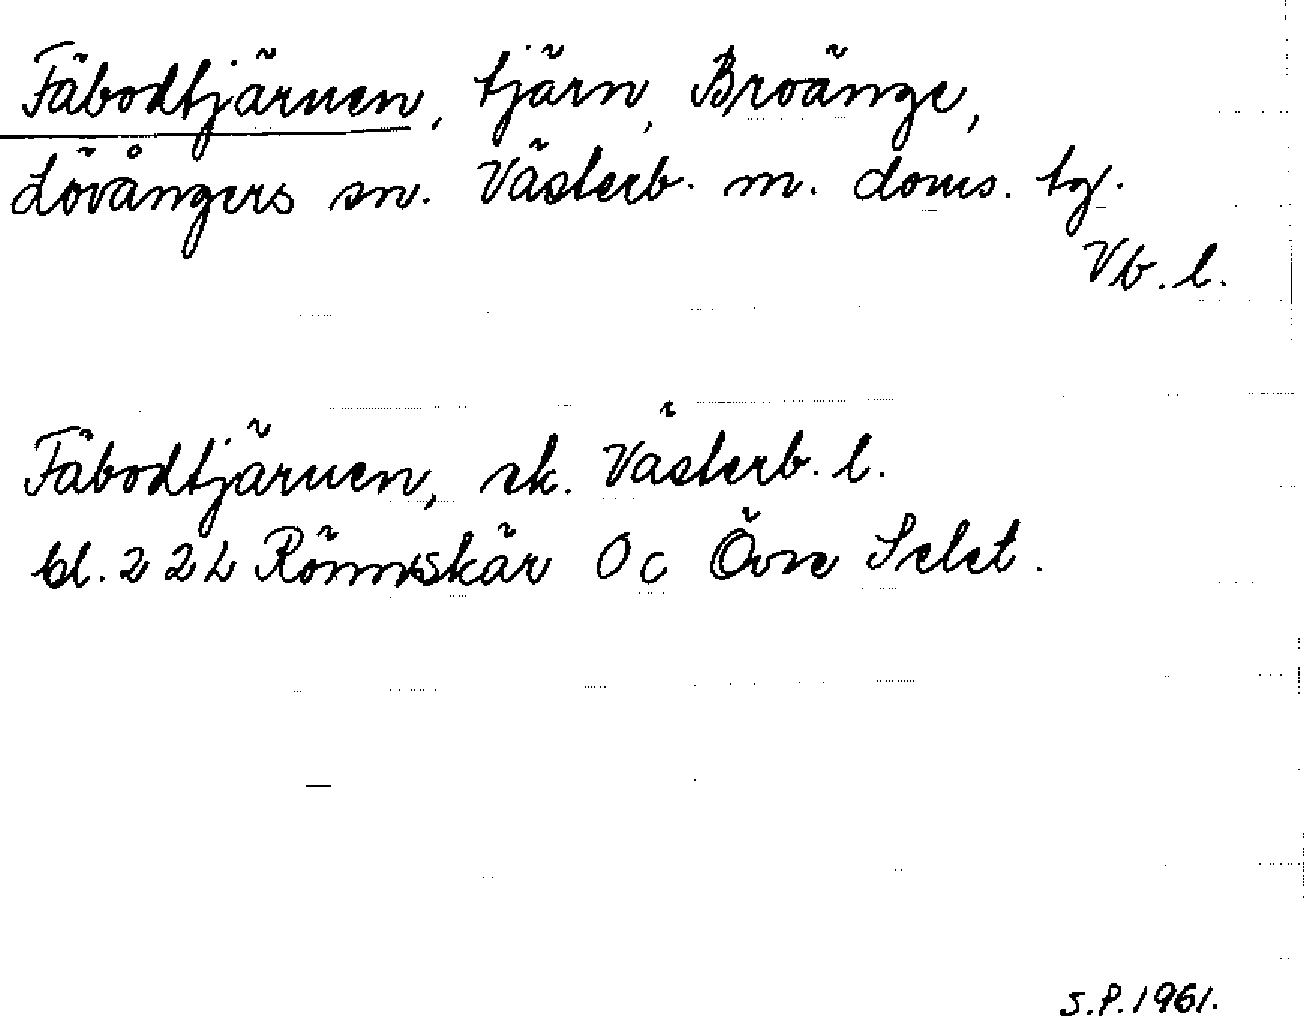 Fäbodtjärnen, tjärn, Broänge,
Lövångers sn. Västerb. m. doms. tg.
Vb. l.
Fäbodtjärnen, ek. Västerb. l.
bl. 22L Rönnskär Oc Övre Selet.
S.P. 1961.